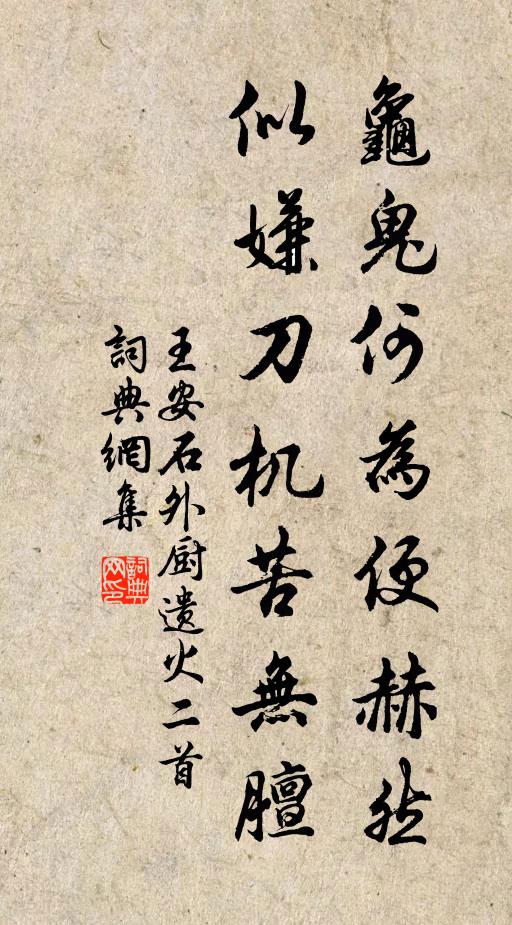 龜鬼何為便赫然
似嫌刀机苦無膻
王安石外厨遗火二首
詞典網集
詞典网印